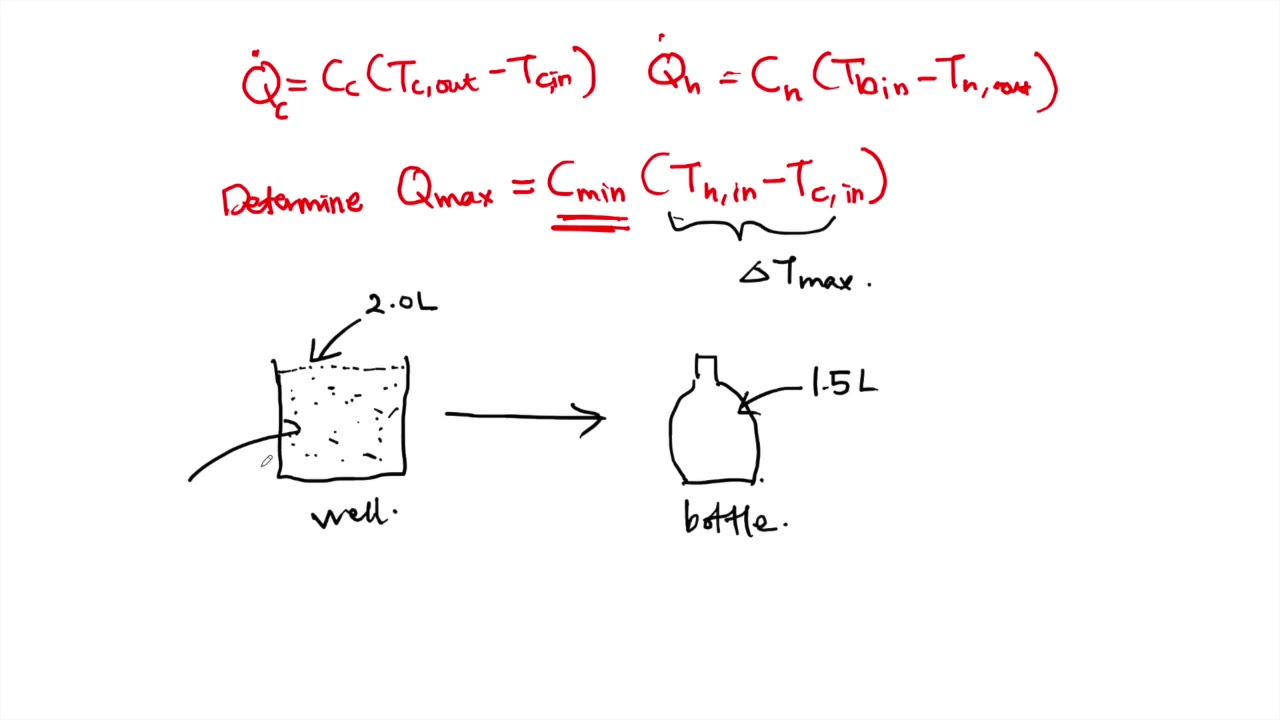 Q̇c = Cc (Tc,out - Tc,in) Q̇h = Ch (Th,in - Th,out)
Determine Qmax = Cmin (Th,in - Tc,in)
ΔTmax.
2.0L
1.5L
well.
bottle.